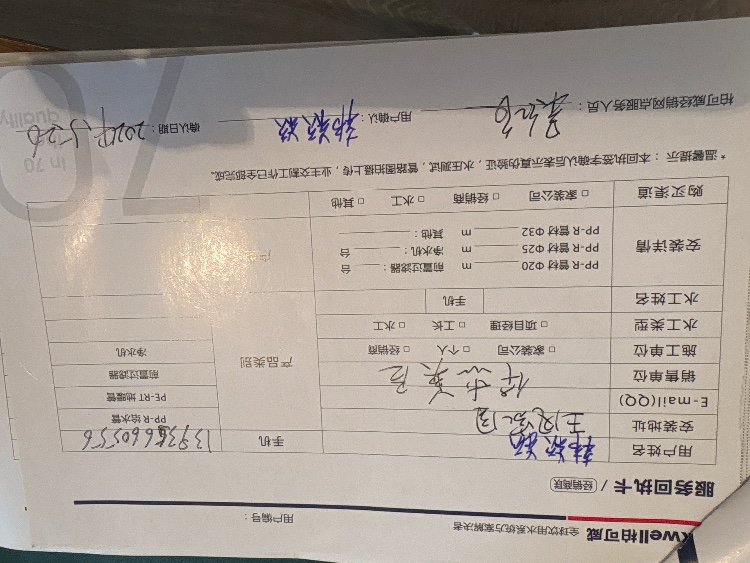 well柏可威 全球饮用水系统方案解决者
用户编号：
服务回执卡 / 经销商联
用户姓名 韩颖颖 手机 13936660556
安装地址
E-mail(QQ)
销售单位
施工单位 □ 家装公司 □ 个人 □ 经销商
水工类型 □ 项目经理 □ 工长 □ 水工
水工姓名 手机
产品类别
PP-R给水管
PE-RT 地暖管
前置过滤器
净水机
安装详情
PP-R 管材 Φ20 m 前置过滤器： 台
PP-R 管材 Φ25 m 净水机： 台
PP-R 管材 Φ32 m 其他：
购买渠道 □ 家装公司 □ 经销商 □ 水工 □ 其他
* 温馨提示：本回执签字确认后表示真伪验证，水压测试，管路图拍摄上传，业主交割工作已全部完成。
柏可威经销网点服务人员： 用户确认：韩颖颖 确认日期：2024.5.26
in 70
quality
70